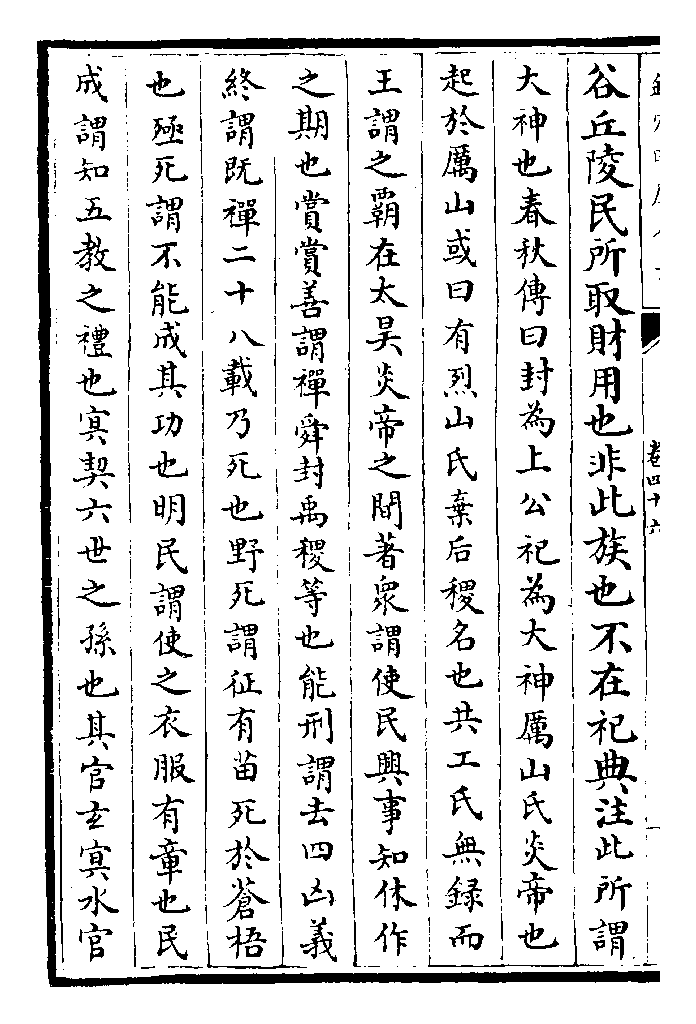 谷丘陵民所取財用也非此族也不在祀典注此所謂
大神也春秋傳曰封為上公祀為大神厲山氏炎帝也
起於厲山或曰有烈山氏棄后稷名也共工氏無録而
王謂之霸在太昊炎帝之間著衆謂使民興事知休作
之期也賞賞善謂禪舜封禹稷等也能刑謂去四凶義
終謂既禪二十八載乃死也野死謂征有苗死於蒼梧
也殛死謂不能成其功也明民謂使之衣服有章也民
成謂知五教之禮也冥契六世之孫也其官玄冥水官
卷四十六